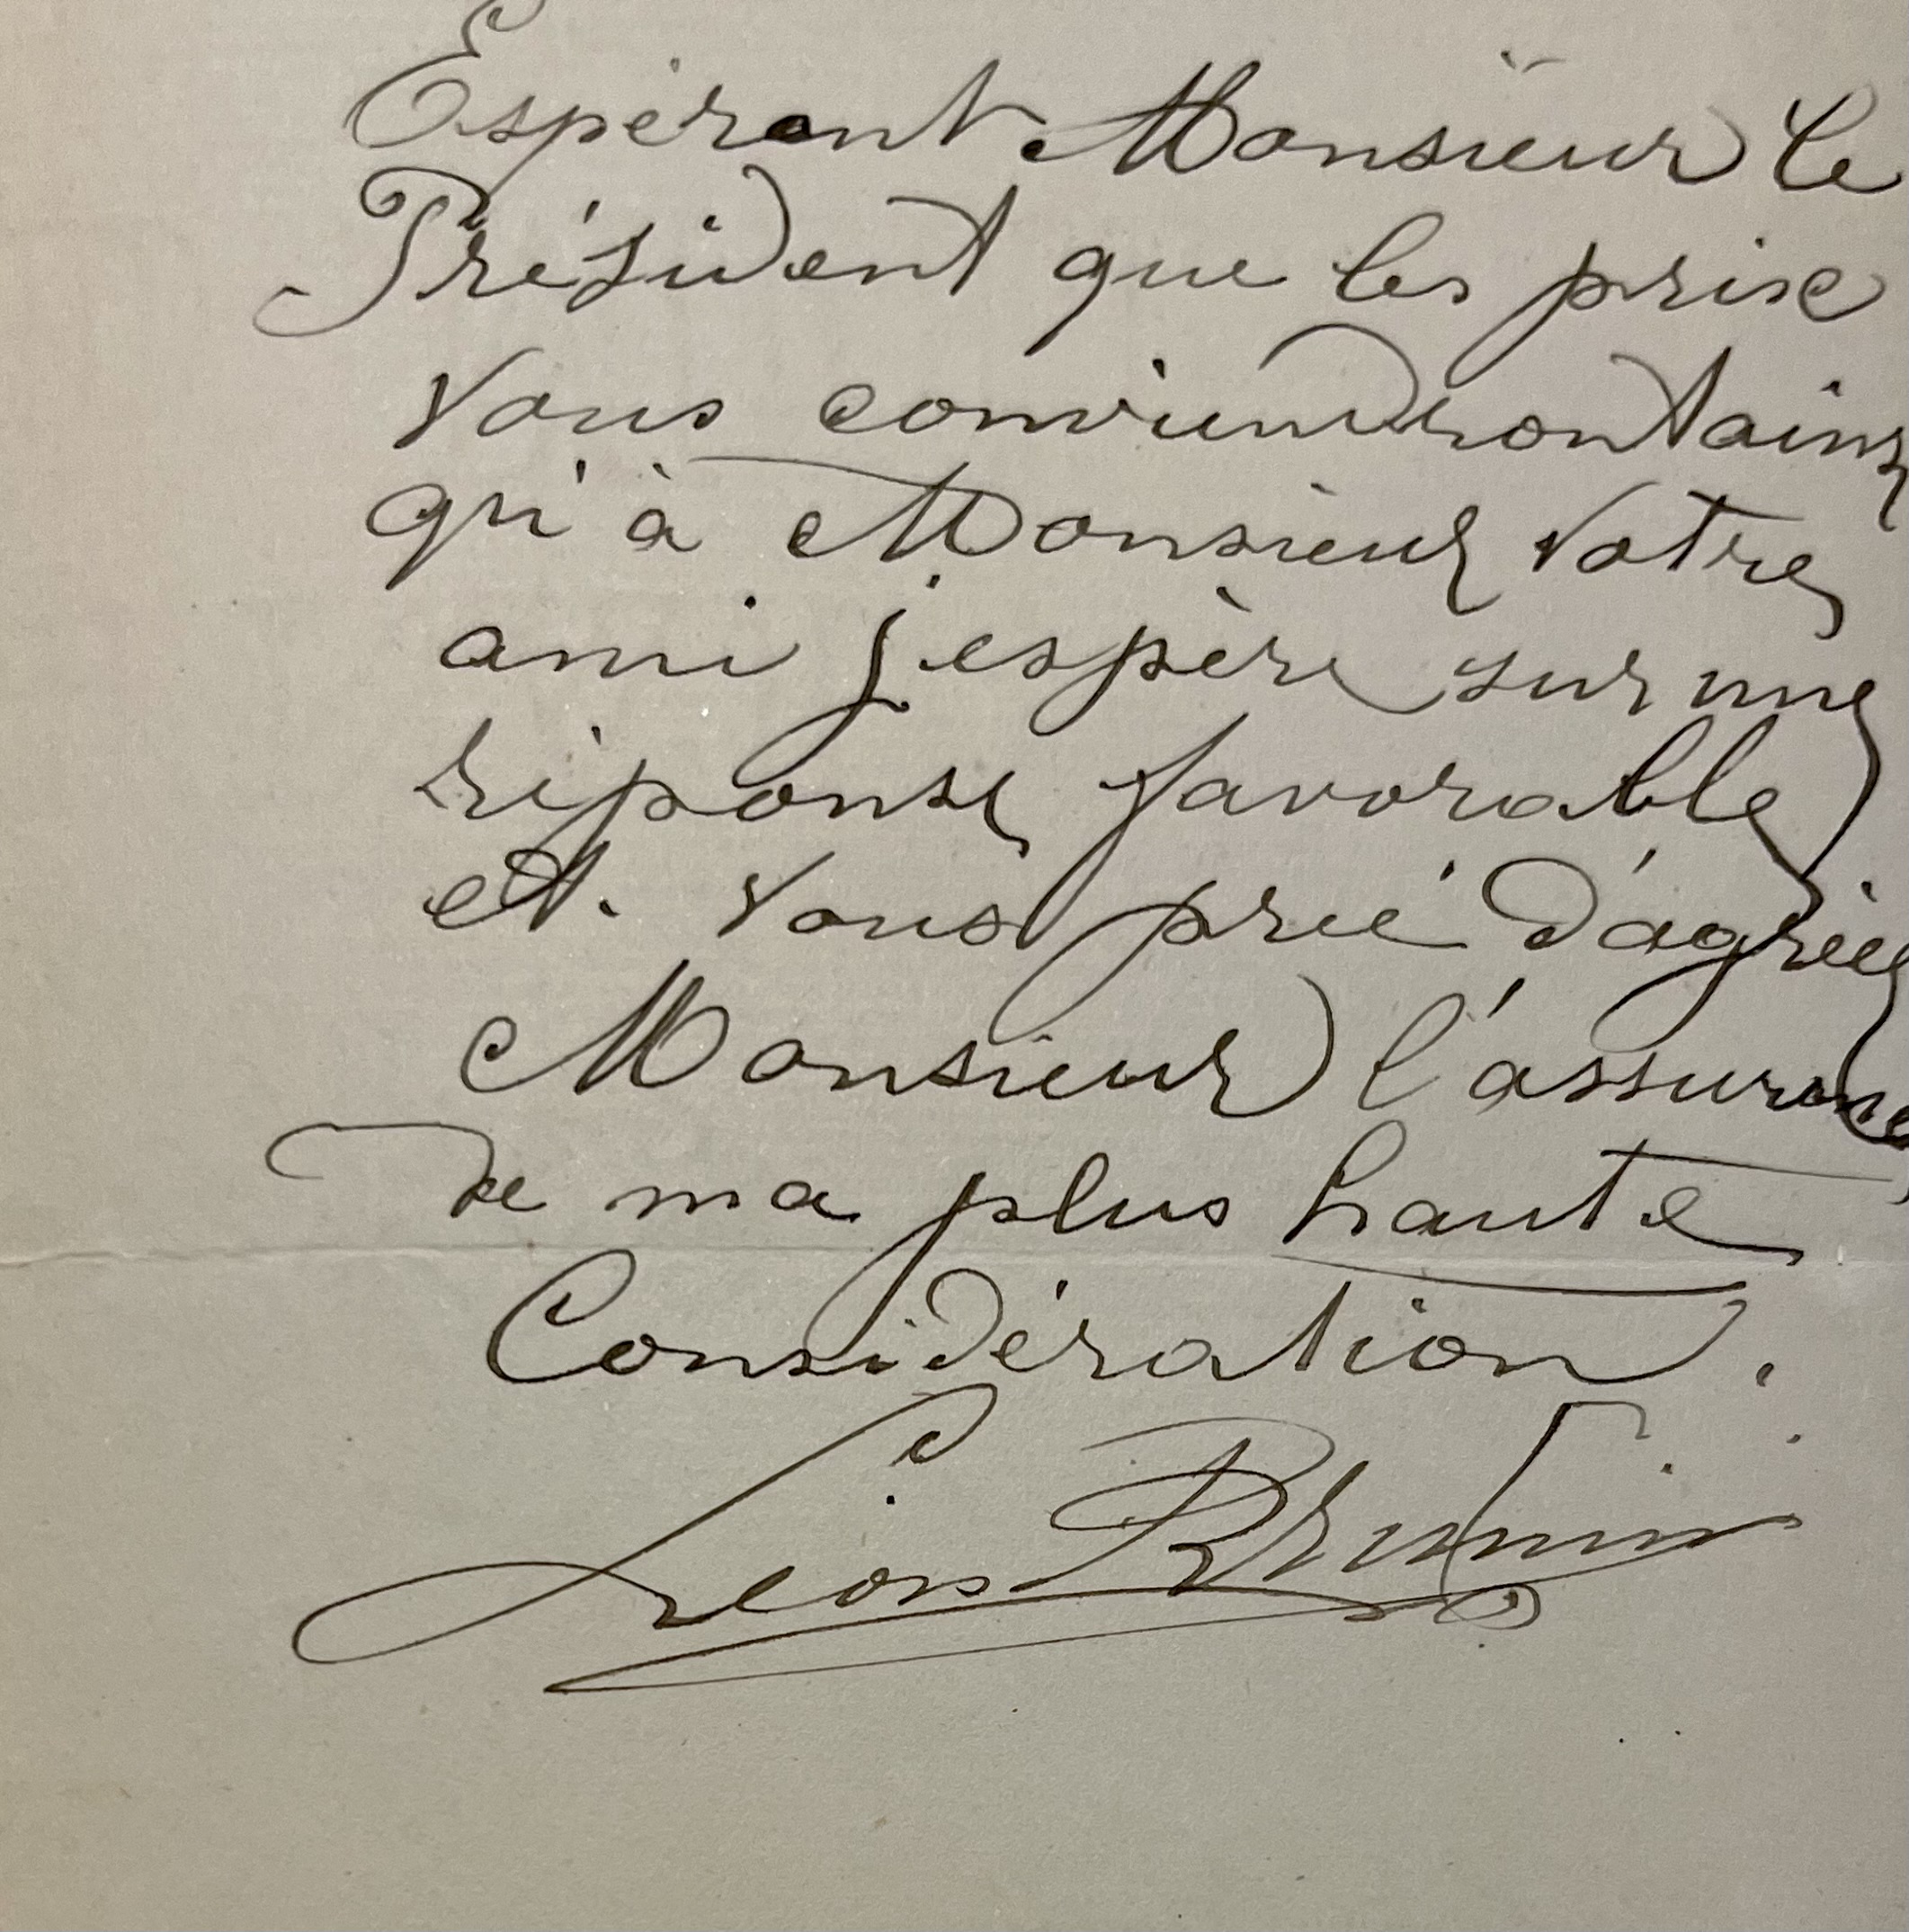 Espérant Monsieur le
Président que les prix
vous conviendront ains
qu'à Monsieur votre
ami j'espère sur une
réponse favorable
et vous prie d'agréer
Monsieur l'assurance
de ma plus haute
Considération.
Léon